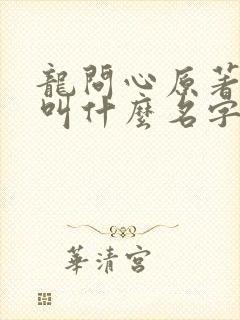 龍問心原著
叫什麼名字
華清宮